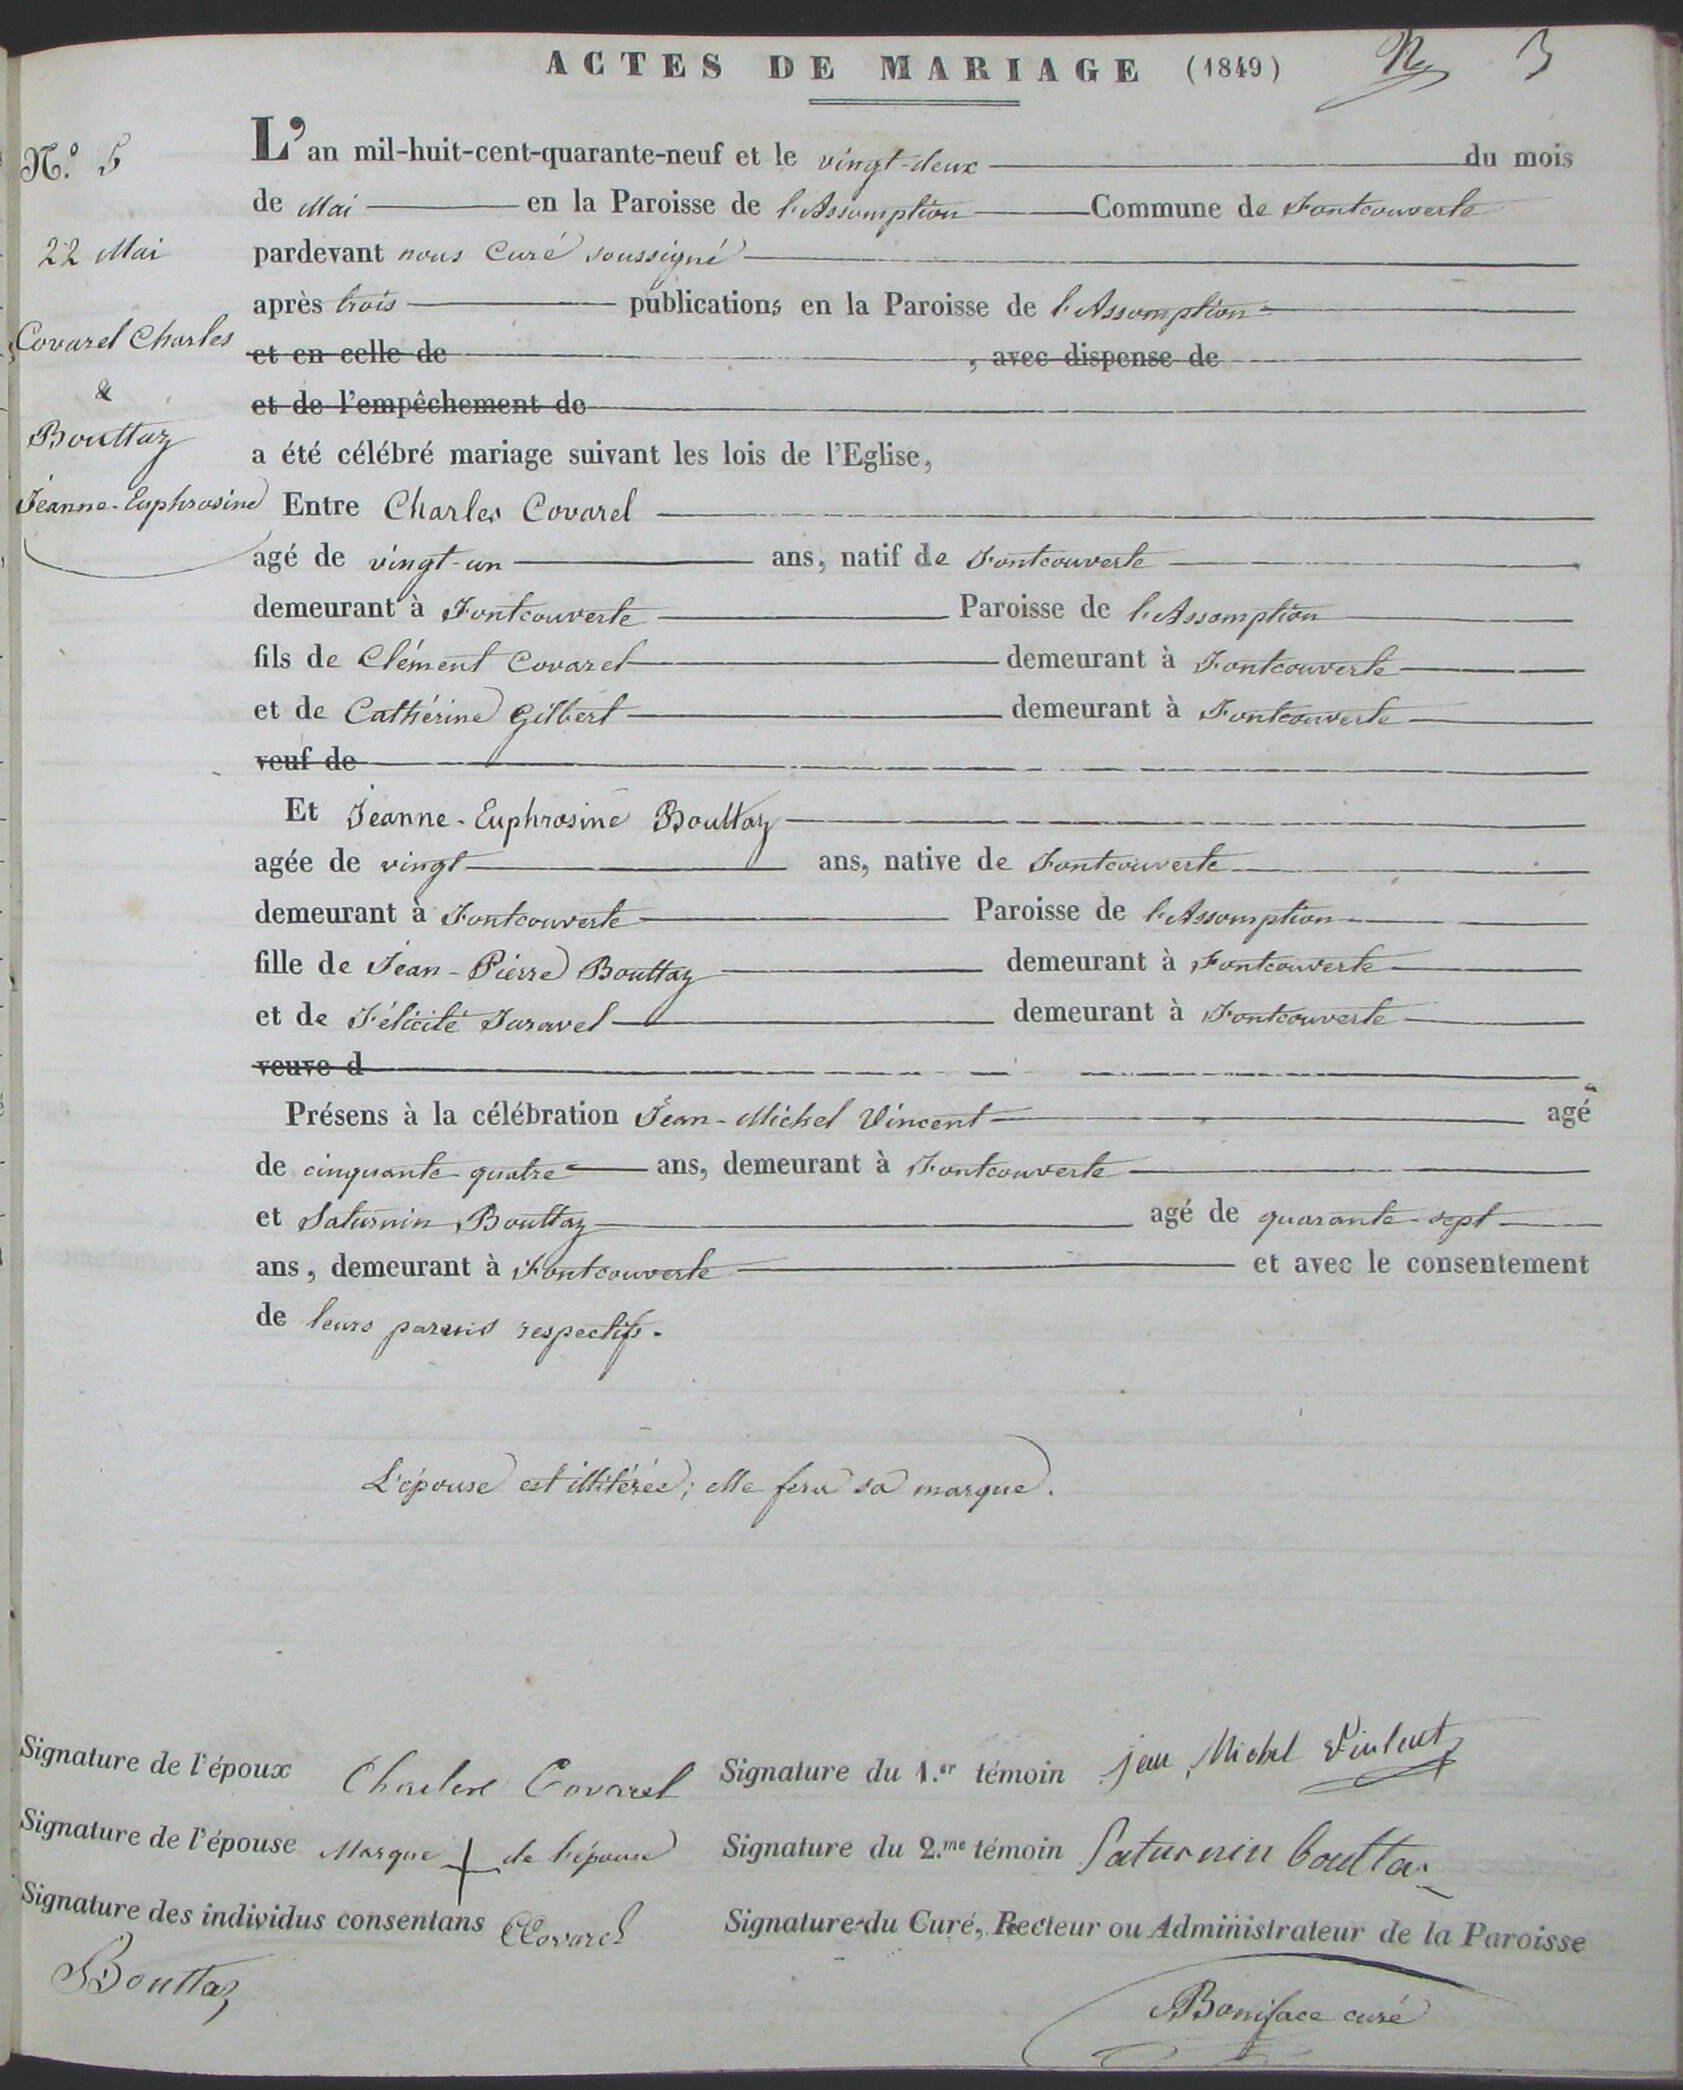 ACTES DE MARIAGE (1849) 3
N.º 5
22 Mai
Covarel Charles
&
Bouttaz
Jeanne-Euphrosine
L'an mil-huit-cent-quarante-neuf et le vingt-deux du mois
de Mai en la Paroisse de l'Assomption Commune de Fontcouverte
pardevant nous Curé soussigné
après trois publications en la Paroisse de l'Assomption
et en celle de , avec dispense de
et de l'empêchement de
a été célébré mariage suivant les lois de l'Eglise,
Entre Charles Covarel
agé de vingt-un ans, natif de Fontcouverte
demeurant à Fontcouverte Paroisse de l'Assomption
fils de Clément Covarel demeurant à Fontcouverte
et de Cathérine Gilbert demeurant à Fontcouverte
veuf de
Et Jeanne-Euphrosine Bouttaz
agée de vingt ans, native de Fontcouverte
demeurant à Fontcouverte Paroisse de l'Assomption
fille de Jean-Pierre Bouttaz demeurant à Fontcouverte
et de Félicité Taravel demeurant à Fontcouverte
veuve d
Présens à la célébration Jean-Michel Vincent agé
de cinquante-quatre ans, demeurant à Fontcouverte
et Saturnin Bouttaz agé de quarante-sept
ans, demeurant à Fontcouverte et avec le consentement
de leurs parens respectifs.
L'épouse est illitérée; elle fera sa marque.
Signature de l'époux Charles Covarel Signature du 1.er témoin jean Michel Vincent
Signature de l'épouse Marque + de l'épouse Signature du 2.me témoin Saturnin bouttaz
Signature des individus consentans CCovarel Signature du Curé, Recteur ou Administrateur de la Paroisse
Bouttaz
Boniface curé